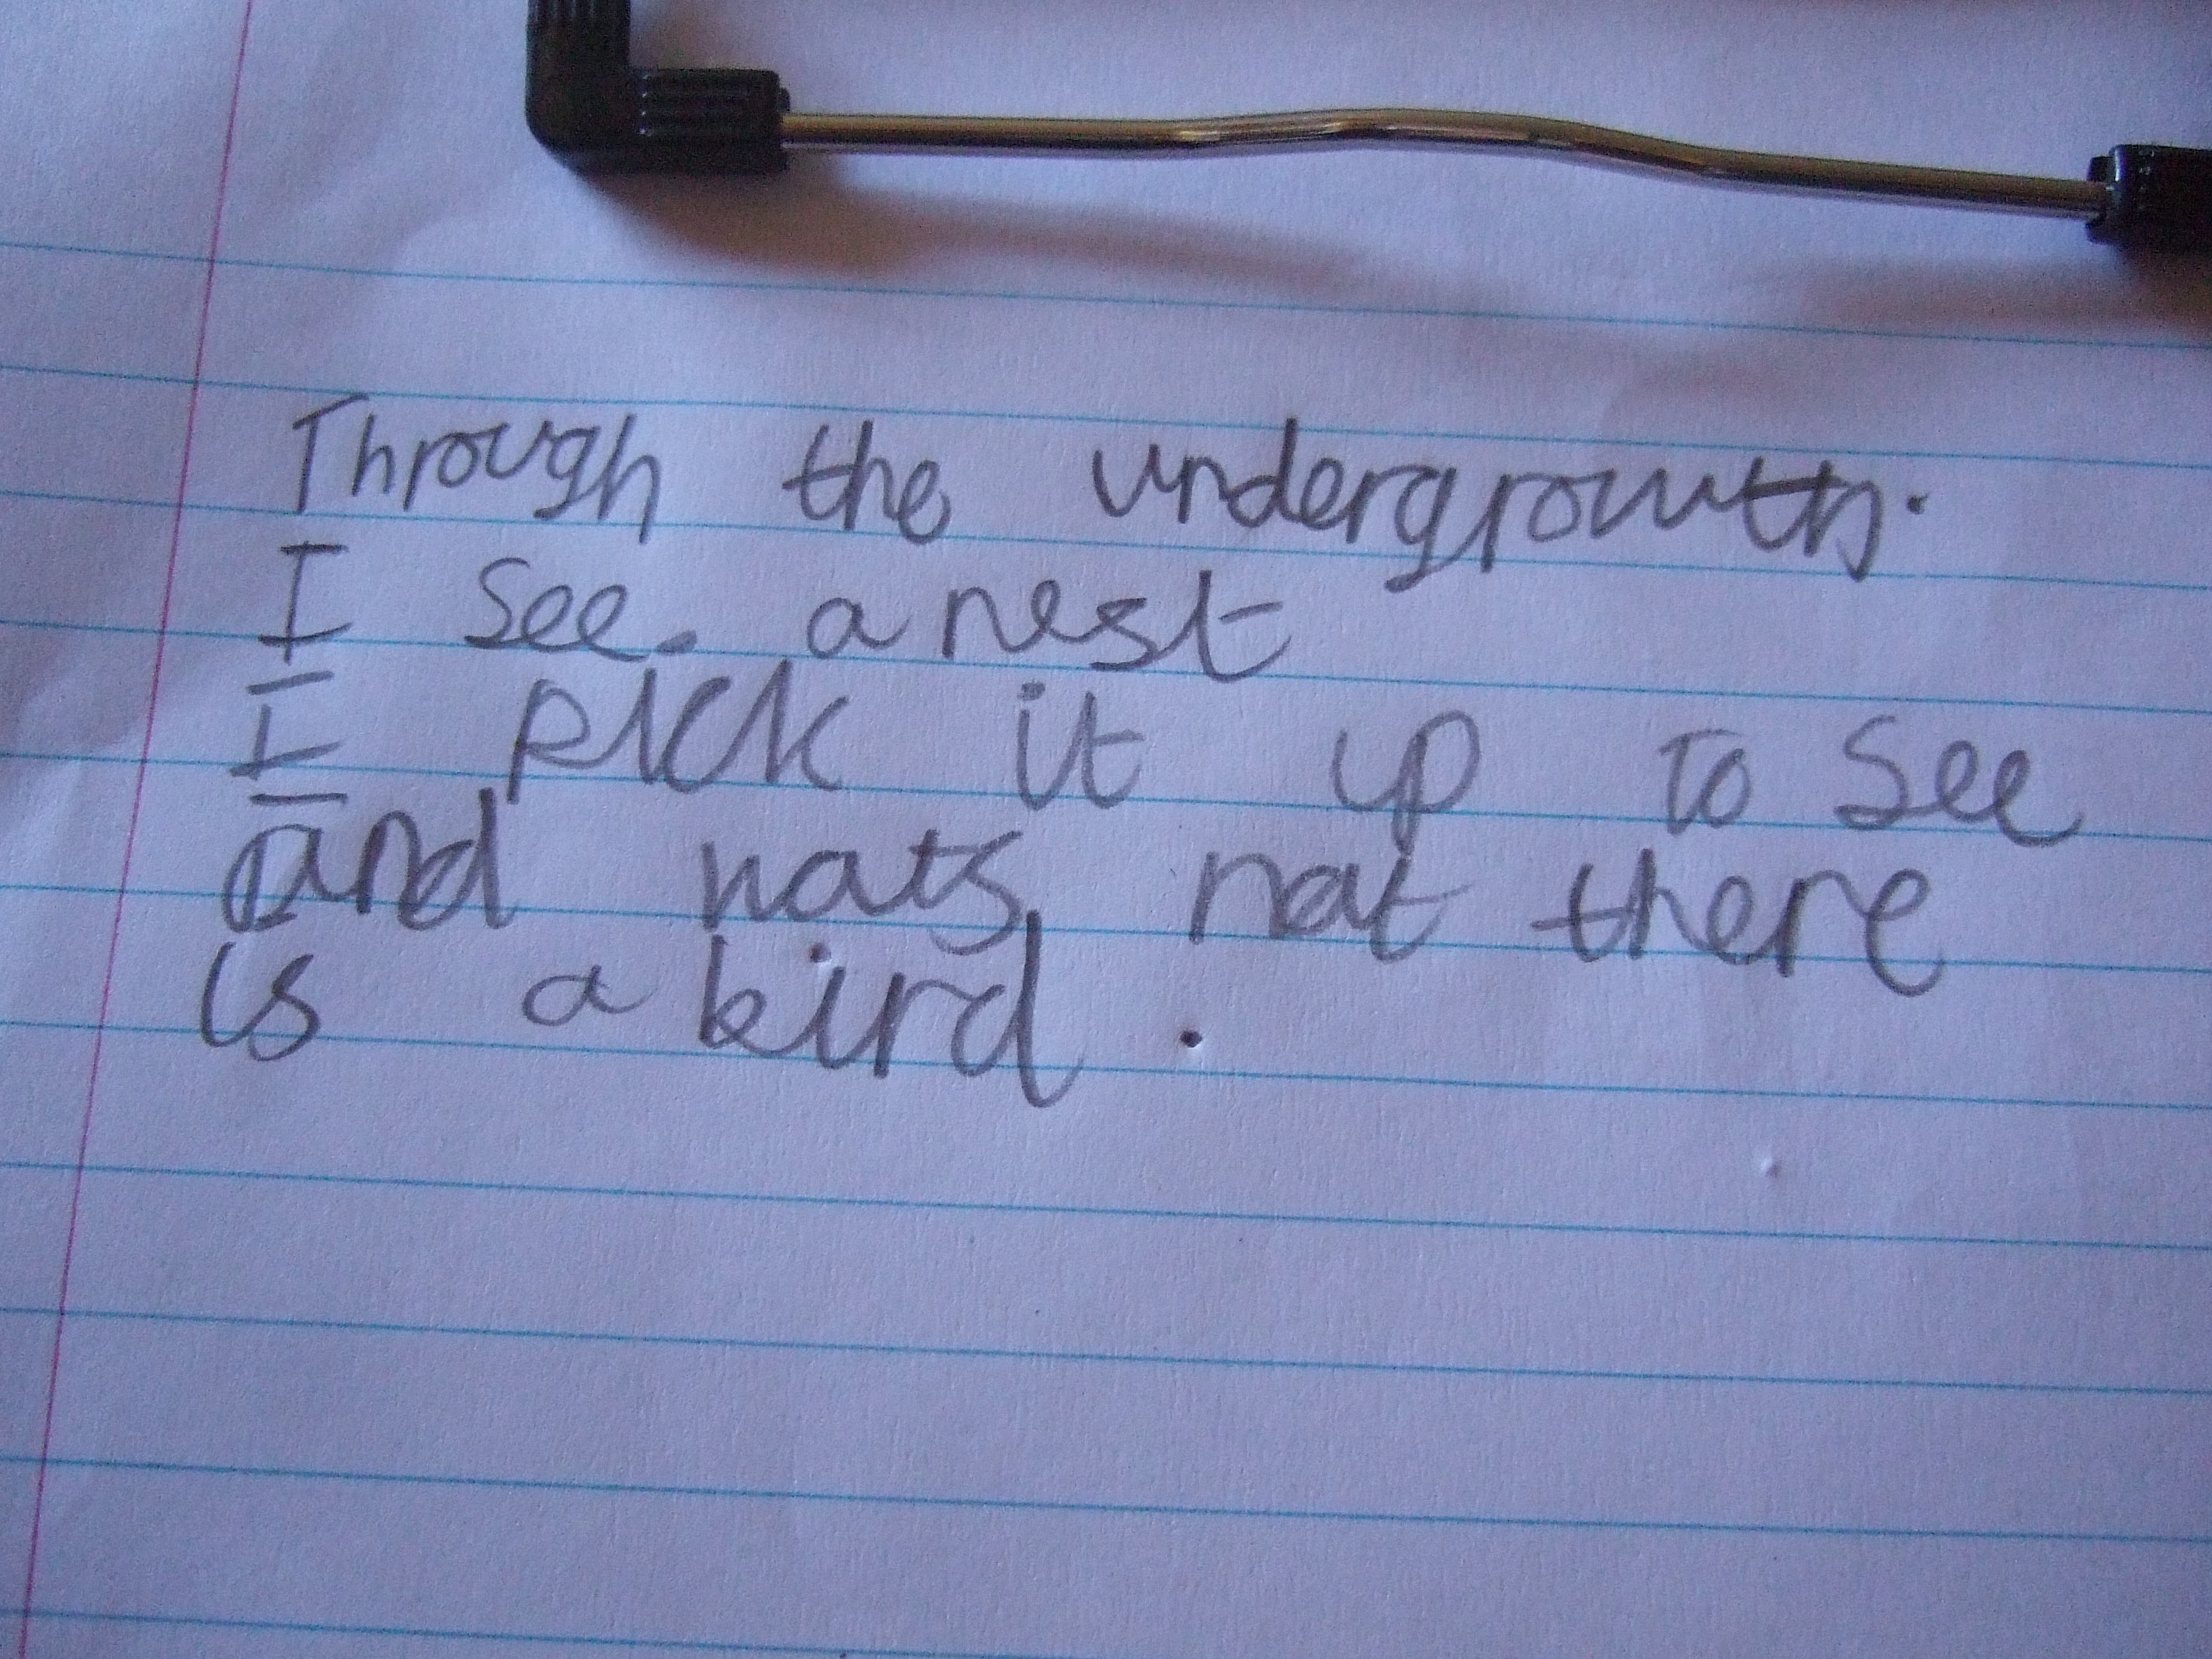 Through the undergrowth.
I see. a nest
I pick it up to see
and wats not there
is a bird .